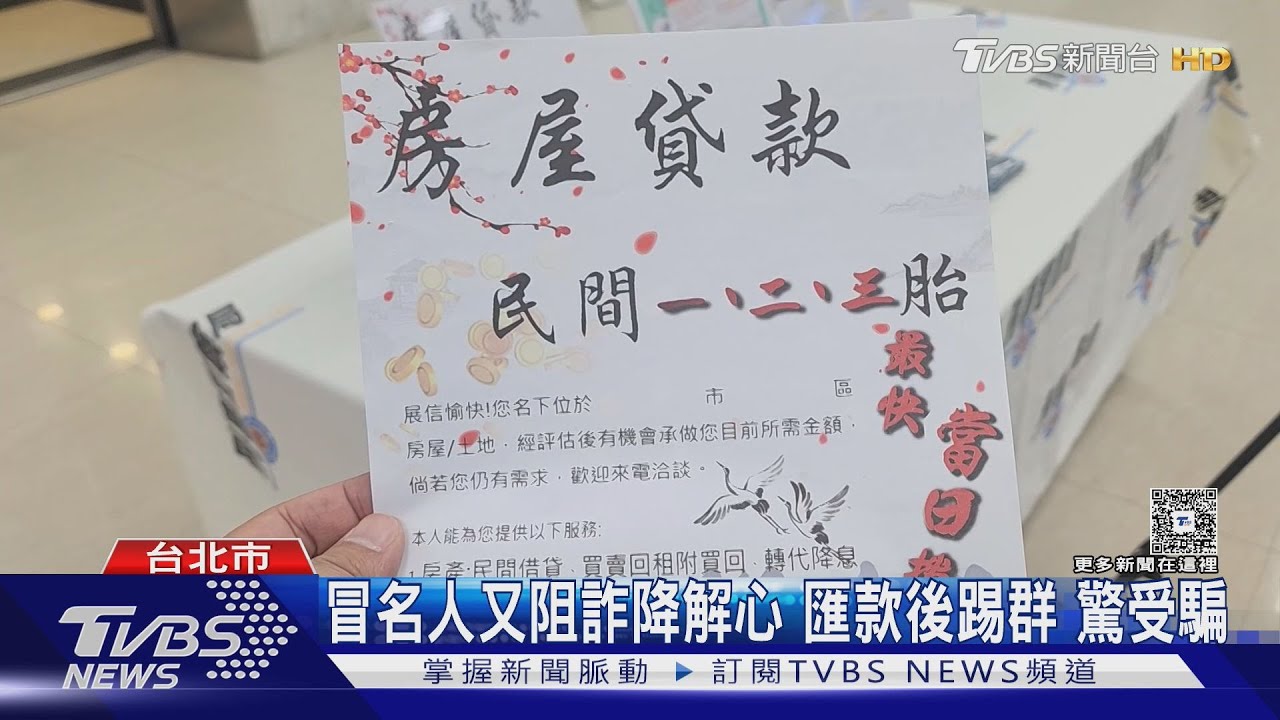 TVBS新聞台 HD
房屋貸款
民間一、二、三胎
最快
當日
展信愉快!您名下位於 市 區
房屋/土地，經評估後有機會承做您目前所需金額，
倘若您仍有需求，歡迎來電洽談。
本人能為您提供以下服務:
1.房產:民間借貸、買賣回租附買回、轉代降息
更多新聞在這裡
台北市
冒名人又阻詐降解心 匯款後踢群 驚受騙
TVBS NEWS
掌握新聞脈動 ▶ 訂閱TVBS NEWS頻道